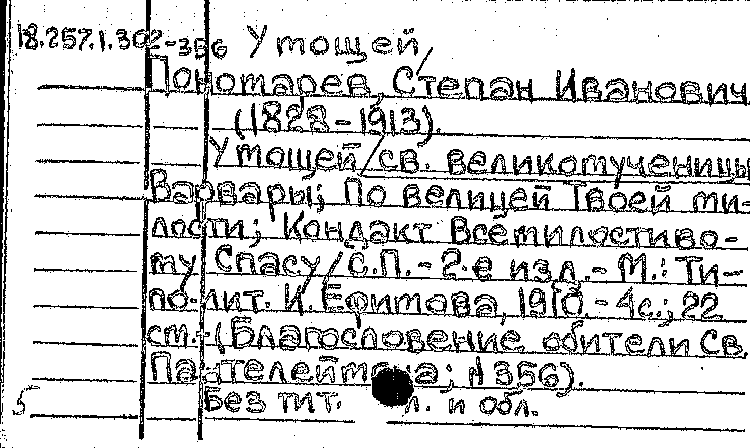 18.257.1.302-356 У тощей/
Пономарев, Степан Иванович
(1828-1913).
У тощей/св. великомученицы
Варвары; По велицей Твоей ми-
лости; Кондакт Всемилостиво-
му Спасу/С.П.-2-е изд.-М.: Ти-
по-лит. И. Ефимова, 1910.-4с.; 22
ст.-(Благословение обители Св.
Пантелеймона; №356).
Без тит. л. и обл.
5